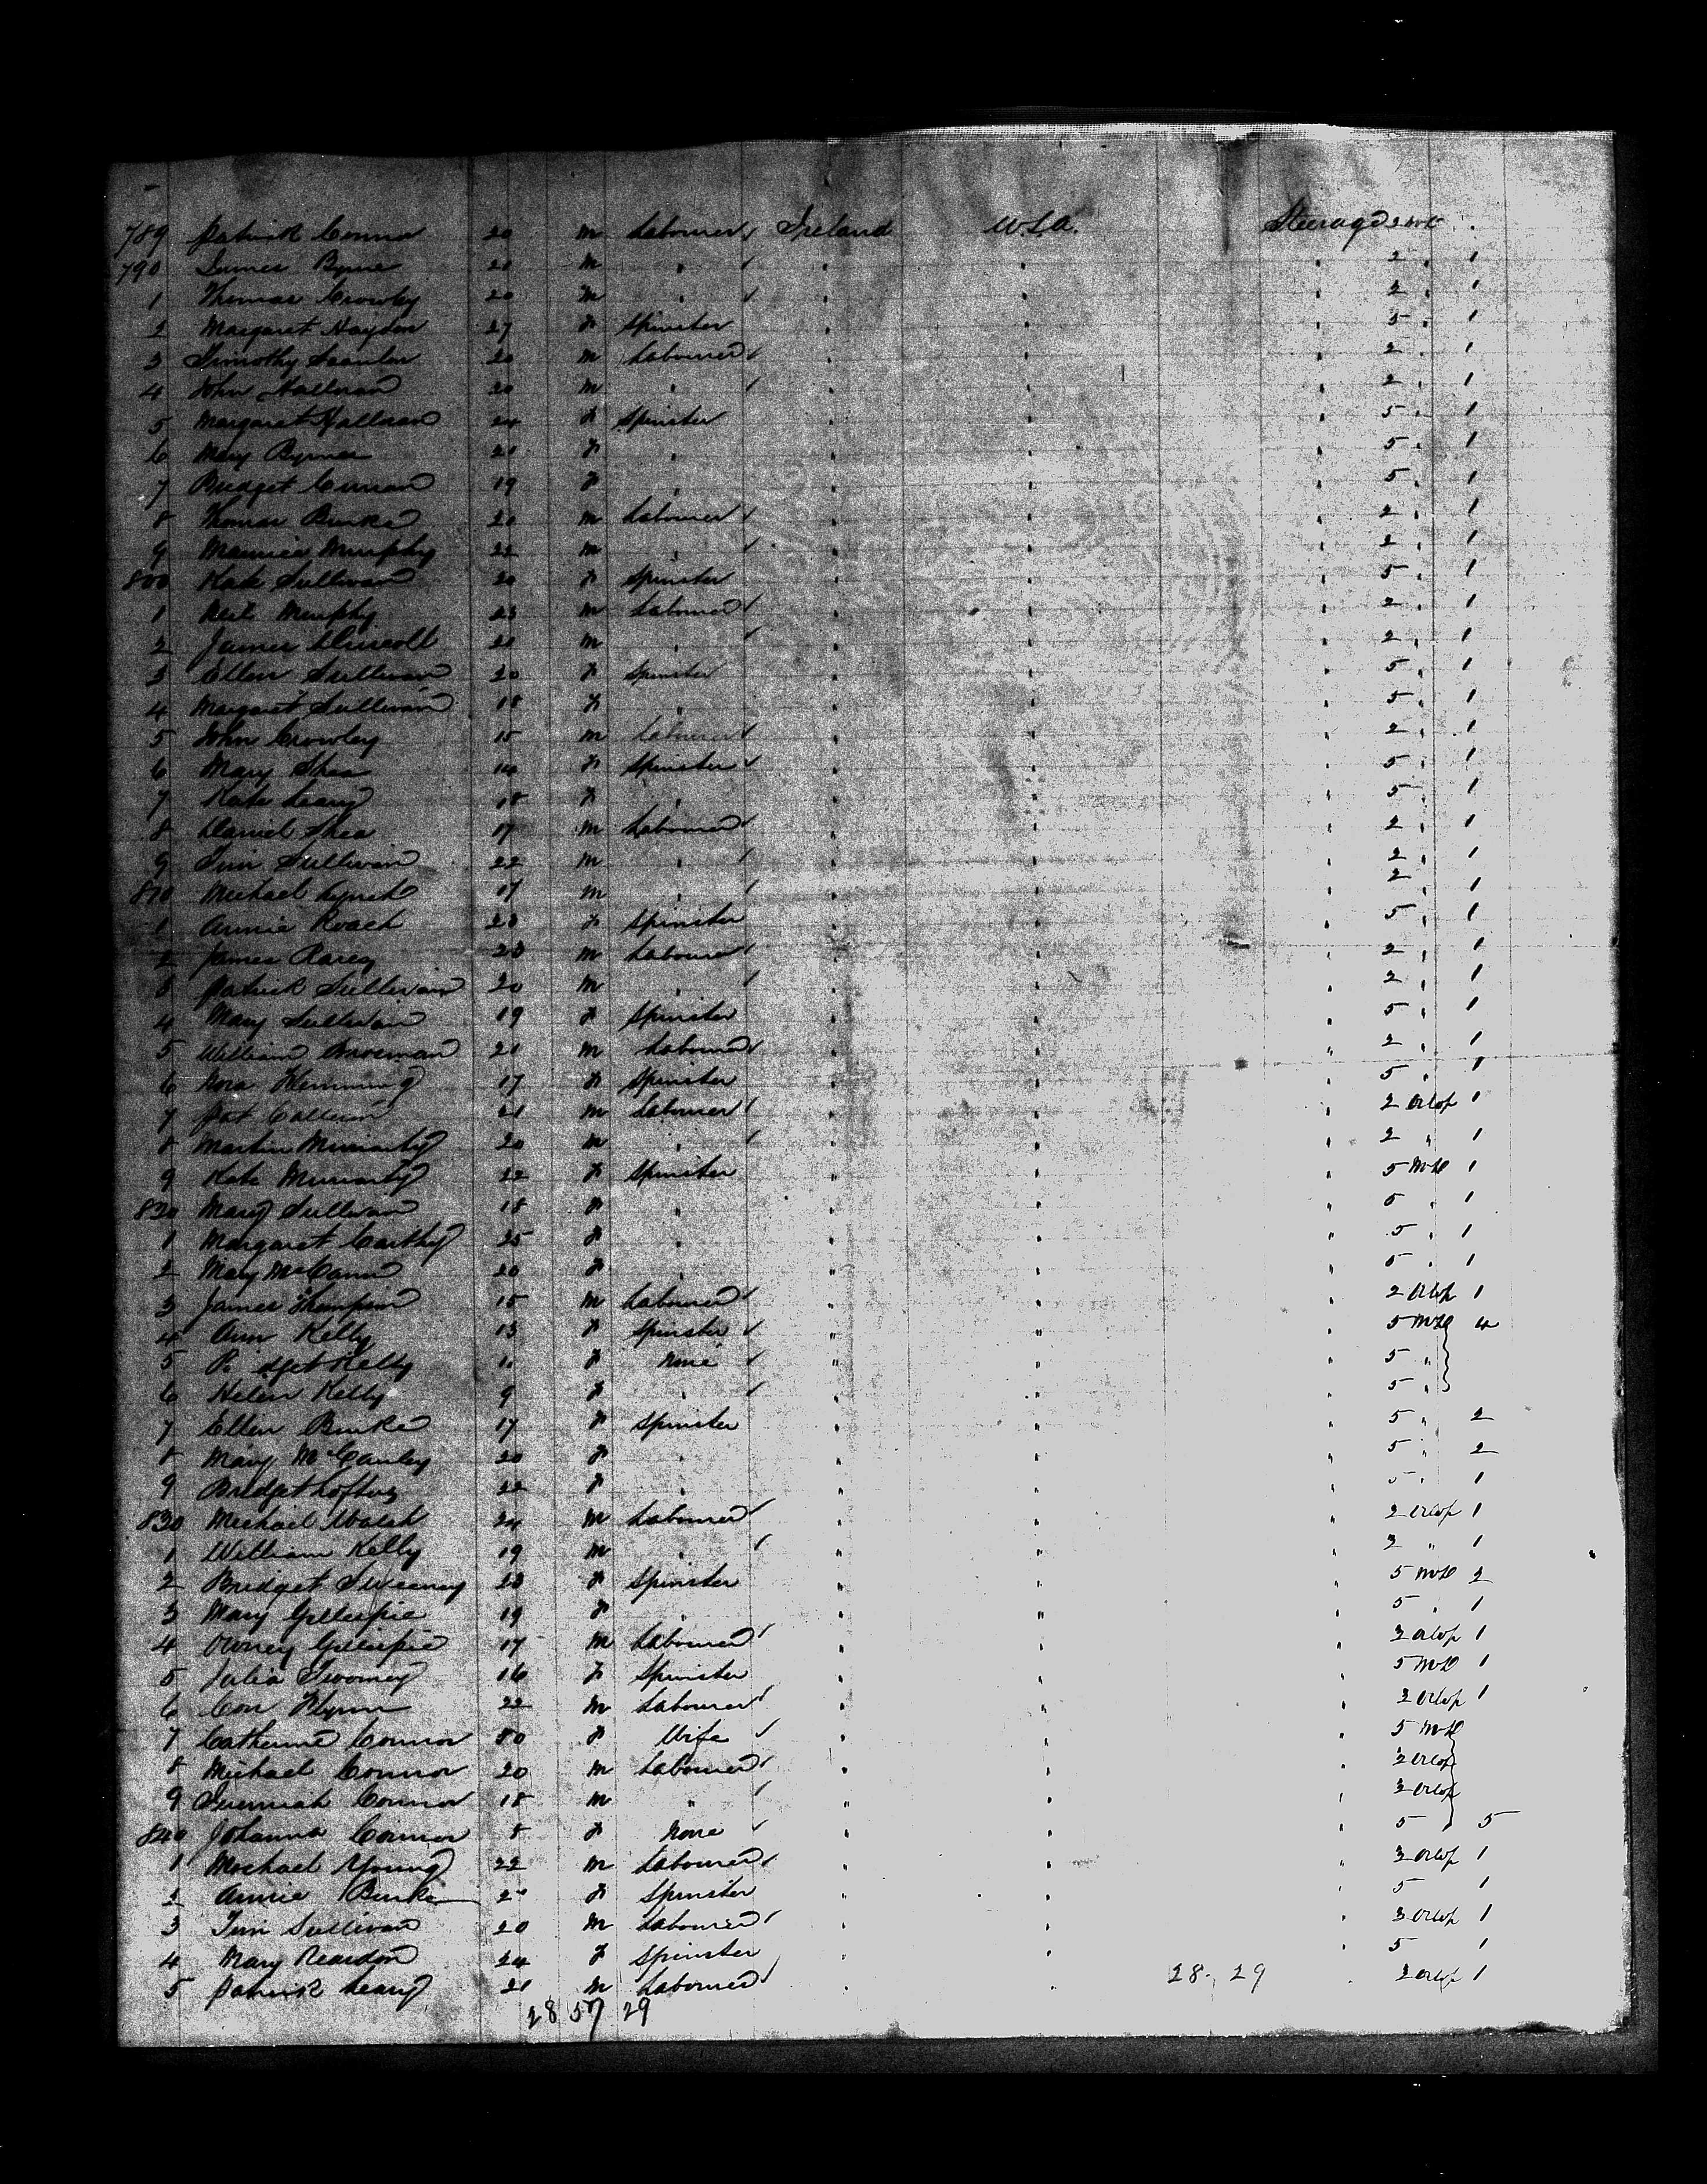 789 Patrick Connor 20 m Labourer Ireland U.S.A. Steerage 2
790 James Byrne 21 m " " " " 2 " 1
1 Thomas Crowley 20 m " " " " 2 " 1
2 Margaret Haydon 27 f Spinster " " " 5 " 1
3 Timothy Scanlan 20 m Labourer " " " 2 " 1
4 John Hallinan 20 m " " " " 2 " 1
5 Margaret Hallinan 24 f Spinster " " " 5 " 1
6 Mary Byrnes 21 f " " " " 5 " 1
7 Bridget Curran 19 f " " " " 5 " 1
8 Thomas Burke 21 m Labourer " " " 2 " 1
9 Maurice Murphy 22 m " " " " 2 " 1
800 Kate Sullivan 20 f Spinster " " " 5 " 1
1 Murphy 23 m Labourer " " " 2 " 1
2 James Driscoll 21 m " " " " 2 " 1
3 Ellen Sullivan 20 f Spinster " " " 5 " 1
4 Margaret Sullivan 18 f " " " " 5 " 1
5 John Crowley 15 m Labourer " " " 2 " 1
6 Mary Shea 14 f Spinster " " " 5 " 1
7 Kate Leary 18 f " " " " 5 " 1
8 Daniel Shea 17 m Labourer " " " 2 " 1
9 Tim Sullivan 22 m " " " " 2 " 1
810 Michael Lynch 17 m " " " " 2 " 1
1 Annie Roach 23 f Spinster " " " 5 " 1
2 James Carey 23 m Labourer " " " 2 " 1
3 Patrick Sullivan 20 m " " " " 2 " 1
4 Mary Sullivan 19 f Spinster " " " 5 " 1
5 William Brosnan 21 m Labourer " " " 2 " 1
6 Nora Flemming 17 f Spinster " " " 5 " 1
7 Pat 21 m Labourer " " " 2 Orlop 1
8 Martin Moriarty 20 m " " " " 2 " 1
9 Kate Moriarty 22 f Spinster " " " 5 1
820 Mary Sullivan 18 f " " " " 5 " 1
1 Margaret Carthy 25 f " " " " 5 " 1
2 Mary McCann 20 f " " " " 5 " 1
3 James Thompson 15 m Labourer " " " 2 Orlop 1
4 Ann Kelly 13 f Spinster " " " 5 4
5 Kelly f None " " " 5 "
6 Helen Kelly 9 f " " " " 5 "
7 Ellen Burke 17 f Spinster " " " 5 " 2
8 Mary McCauley 20 f " " " " 5 " 2
9 Bridget Loftus 22 f " " " " 5 " 1
830 Michael Walsh 24 m Labourer " " " 2 Orlop 1
1 William Kelly 19 m " " " " 2 " 1
2 Bridget Sweeney 23 f Spinster " " " 5 2
3 Mary Gillespie 19 f " " " " 5 " 1
4 Owney Gillespie 17 m Labourer " " " 2 Orlop 1
5 Julia Twomey 16 f Spinster " " " 5 1
6 Con Flynn 22 m Labourer " " " 2 Orlop 1
7 Catherine Connor 50 f Wife " " " 5
8 Michael Connor 20 m Labourer " " " 2 Orlop
9 Jeremiah Connor 18 m " " " " 2 Orlop
840 Johanna Connor 8 f None " " " 5 " 5
1 Michael Young 22 m Labourer " " " 2 Orlop 1
2 Annie Burke f Spinster " " " 5 1
3 Tim Sullivan 20 m Labourer " " " 2 Orlop 1
4 Mary Reardon 24 f Spinster " " " 5 1
5 Patrick Leary 21 m Labourer " " 28-29 " 2 Orlop 1
28 57 29